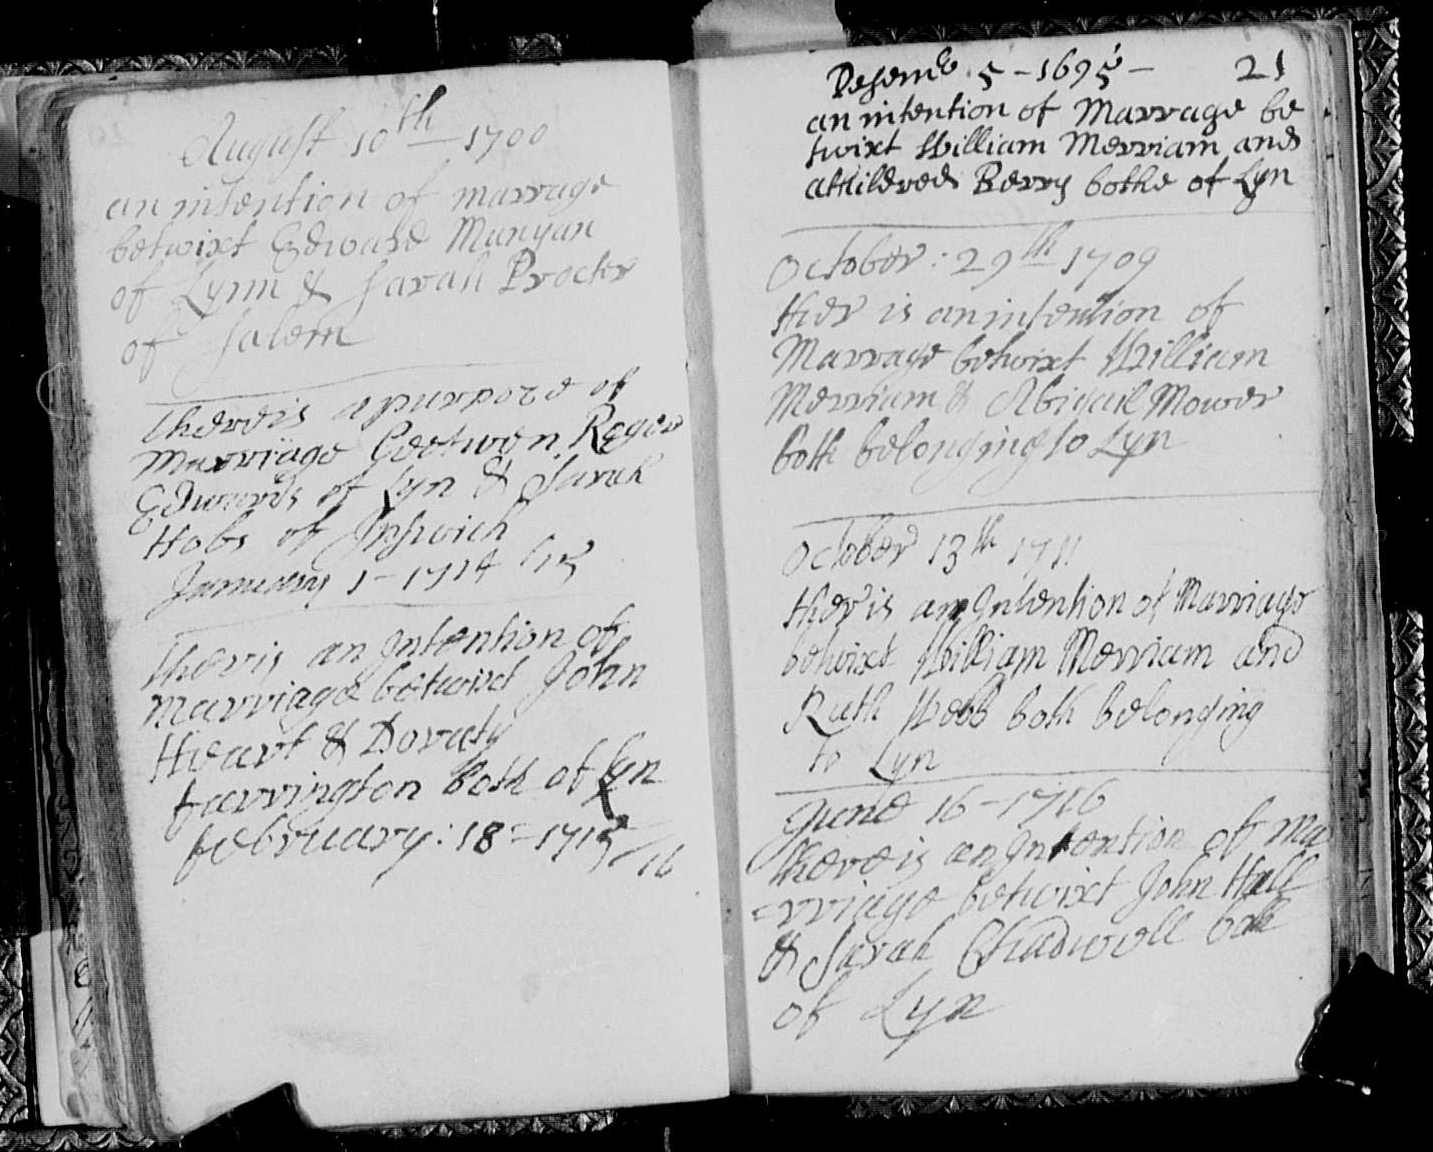 August 10th 1700
an intention of marrage
betwixt Edward Munyan
of Lynn & Sarah Procter
of Salem
there is a purpoze of
Marriage Beetwen Roger
Edwards of Lyn & Sarah
Hobs of Ipswich
January 1 - 1714/15
theris an Intention of
Marriage betwixt John
Heart & Doraty
farrington both of Lyn
february: 18 = 1715/16
21
Desemb 5 - 1695 -
an intention of Marrage be
twixt William Merriam and
Athildred Berry bothe of Lyn
October: 29th 1709
Her is an intention of
Marrage betwixt William
Merriam & Abigail Mower
both belonging to Lyn
October 13th 1711
ther is an Intention of Marriage
betwixt William Merriam and
Ruth Webb both belonging
to Lyn
June 16 - 1716
there is an Intention of Ma
=rriage betwixt John Hall
& Sarah Chadwell both
of Lyn